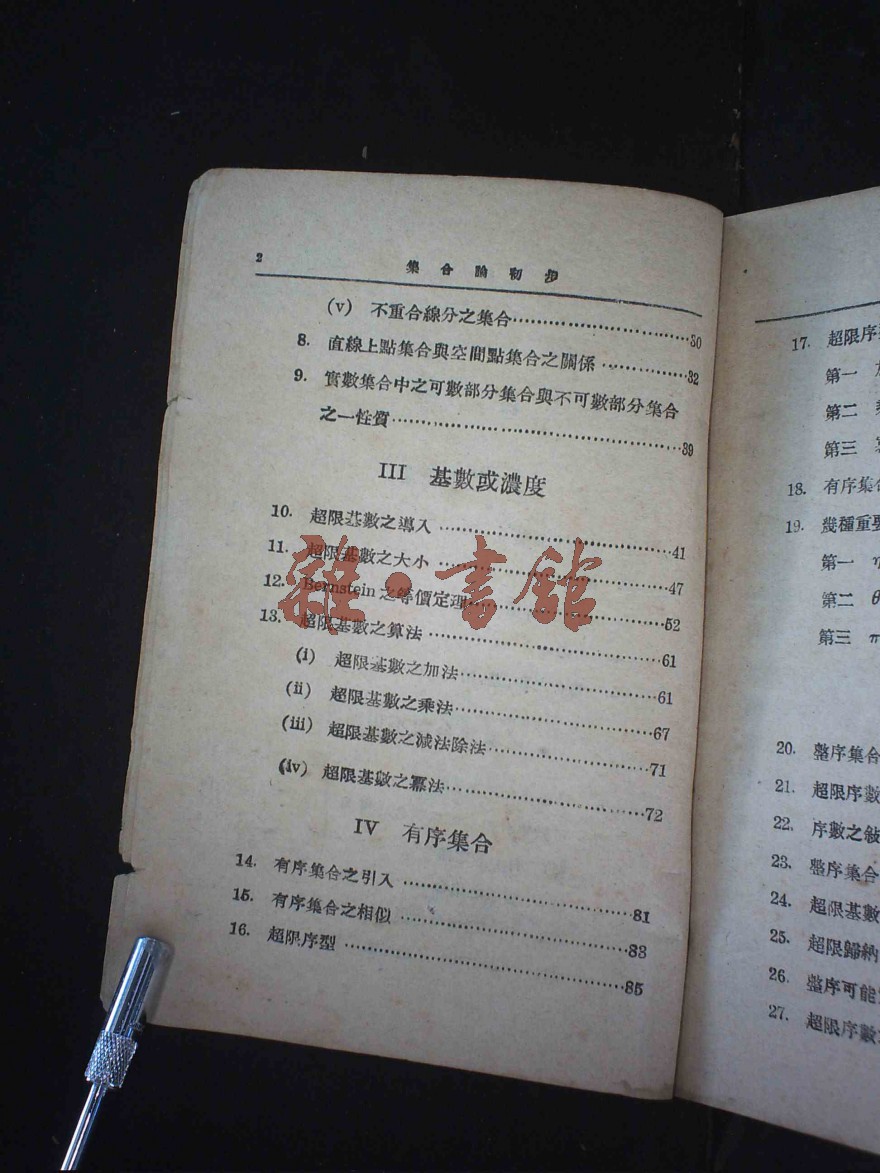 2
集合論初步
(v) 不重合線分之集合……30
8. 直線上點集合與空間點集合之關係……32
9. 實數集合中之可數部分集合與不可數部分集合
之一性質……39
III 基數或濃度
10. 超限基數之導入……41
11. 超限基數之大小……47
12. Bernstein 之等價定理……52
13. 超限基數之算法……61
(i) 超限基數之加法……61
(ii) 超限基數之乘法……67
(iii) 超限基數之減法除法……71
(iv) 超限基數之冪法……72
IV 有序集合
14. 有序集合之引入……81
15. 有序集合之相似……83
16. 超限序型……85
雜·書館
17. 超限序
第一
第二
第三
18. 有序集合
19. 幾種重要
第一 η
第二 θ
第三 π
20. 整序集合
21. 超限序數
22. 序數之敍
23. 整序集合
24. 超限基數
25. 超限歸納
26. 整序可能
27. 超限序數